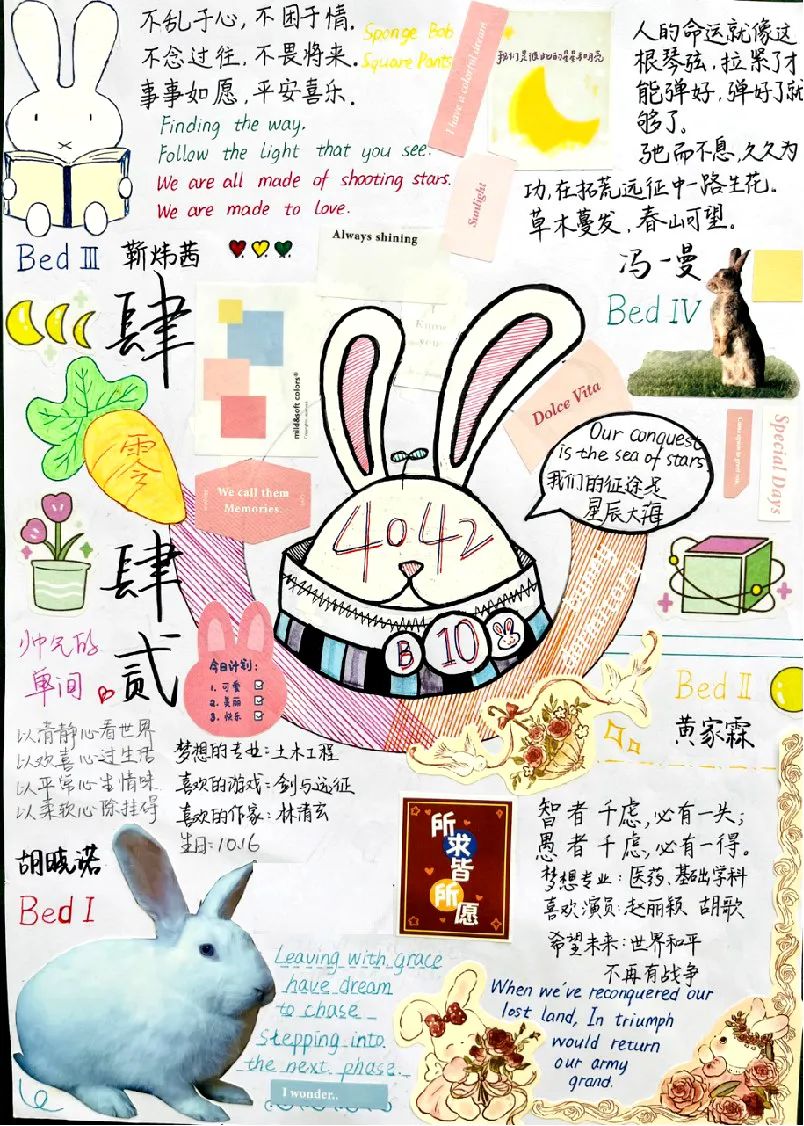 不乱于心，不困于情.
不念过往，不畏将来.
事事如愿，平安喜乐.
Sponge Bob
Square Pants
Finding the way.
Follow the light that you see.
We are all made of shooting stars.
We are made to love.
I have a colorful dream
我们是彼此的星星和月亮
Sunlight
人的命运就像这
根琴弦，拉紧了才
能弹好，弹好了就
够了。
弛而不息，久久为
功，在拓荒远征中一路生花。
草木蔓发，春山可望。
冯一曼
Bed IV
Bed III 靳炜茜
Always shining
肆
零
肆
贰
mild&soft colors®
Know
you
Dolce Vita
Our conquest
is the sea of stars.
我们的征途是
星辰大海
Special Days
We call them
Memories.
4042
B 10
Bunny
dormitory
帅兄的
单间
今日计划：
1. 可爱
2. 美丽
3. 快乐
以清静心看世界
以欢喜心过生活
以平常心生情味
以柔软心除挂碍
梦想的专业：土木工程
喜欢的游戏：剑与远征
喜欢的作家：林清玄
生日：10.16
胡晓诺
Bed I
Bed II
黄家霖
所求皆所愿
智者千虑，必有一失；
愚者千虑，必有一得。
梦想专业：医药、基础学科
喜欢演员：赵丽颖 胡歌
希望未来：世界和平
不再有战争
Leaving with grace
have dream
to chase
Stepping into
the next phase.
I wonder..
When we've reconquered our
lost land, In triumph
would return
our army
grand.